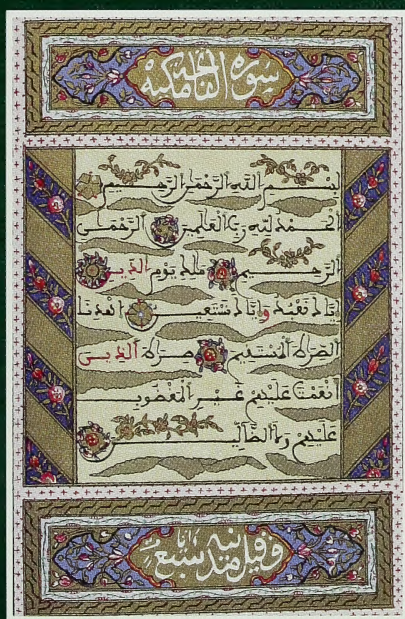 سورة الفاتحة مكية
بسم الله الرحمن الرحيم
الحمد لله رب العلمين الرحمن
الرحيم ملك يوم الدين
إياك نعبد وإياك نستعين اهدنا
الصراط المستقيم صراط الذين
أنعمت عليهم غير المغضوب
عليهم ولا الضالين
وقيل مدنية سبع آيات